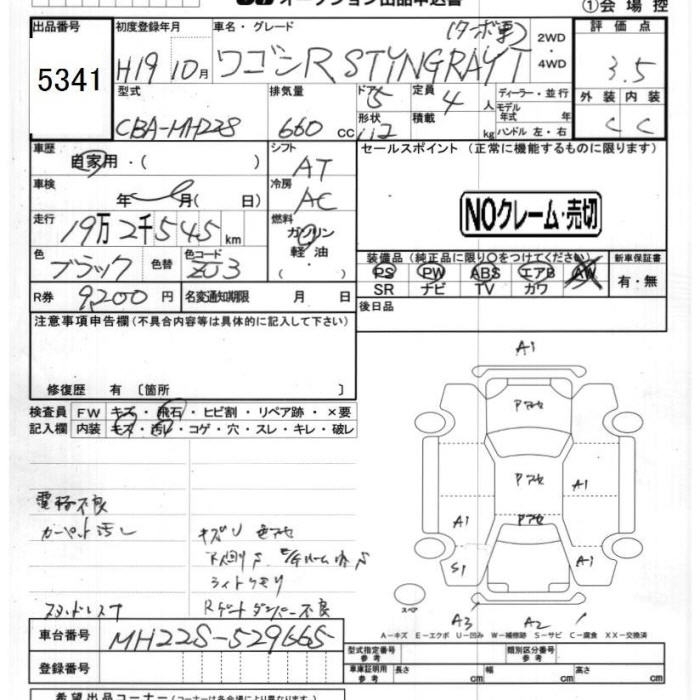 オークション出品申込書
①会場控
出品番号 初度登録年月 車名・グレード (ターボ車) 2WD ・ 4WD 評価点
5341 H19 10月 ワゴンR STINGRAY T 3.5
型式 排気量 ドア 5 定員 4人 ディーラー・並行 外装 内装
CBA-MH22S 660 cc 形状 積載 kg モデル年式 年 ハンドル 左・右 C C
車歴 自家用・( ) シフト AT セールスポイント(正常に機能するものに限ります)
車検 年 月( 日) 冷房 AC NOクレーム・売切
走行 19万2千545km 燃料 ガソリン・軽油・( )
装備品(純正品に限り○をつけてください) 新車保証書
色 ブラック 色替 色コード ZJ3 PS PW ABS エアB AW 有・無
SR ナビ TV カワ
R券 9,200円 名変通知期限 月 日 後日品
注意事項申告欄(不具合内容等は具体的に記入して下さい)
修復歴 有 〔箇所 〕
検査員 FW キズ・飛石・ヒビ割・リペア跡・×要
記入欄 内装 キズ・汚れ・コゲ・穴・スレ・キレ・破レ
A1
Pアセ
Pアセ A1
Pアセ
A1 A1
S1
スペア
A3 A2
電格不良
カーペット汚レ キズリ 色アセ
ライトクモリ
スタッドレス Rゲートダンパー不良
A－キズ E－エクボ U－凹み W－補修跡 S－サビ C－腐食 XX－交換済
車台番号 MH22S-529665
型式指定番号 参考 類別区分番号 参考
登録番号 車庫証明用 参考 長さ cm 幅 cm 高さ cm
希望出品コーナー